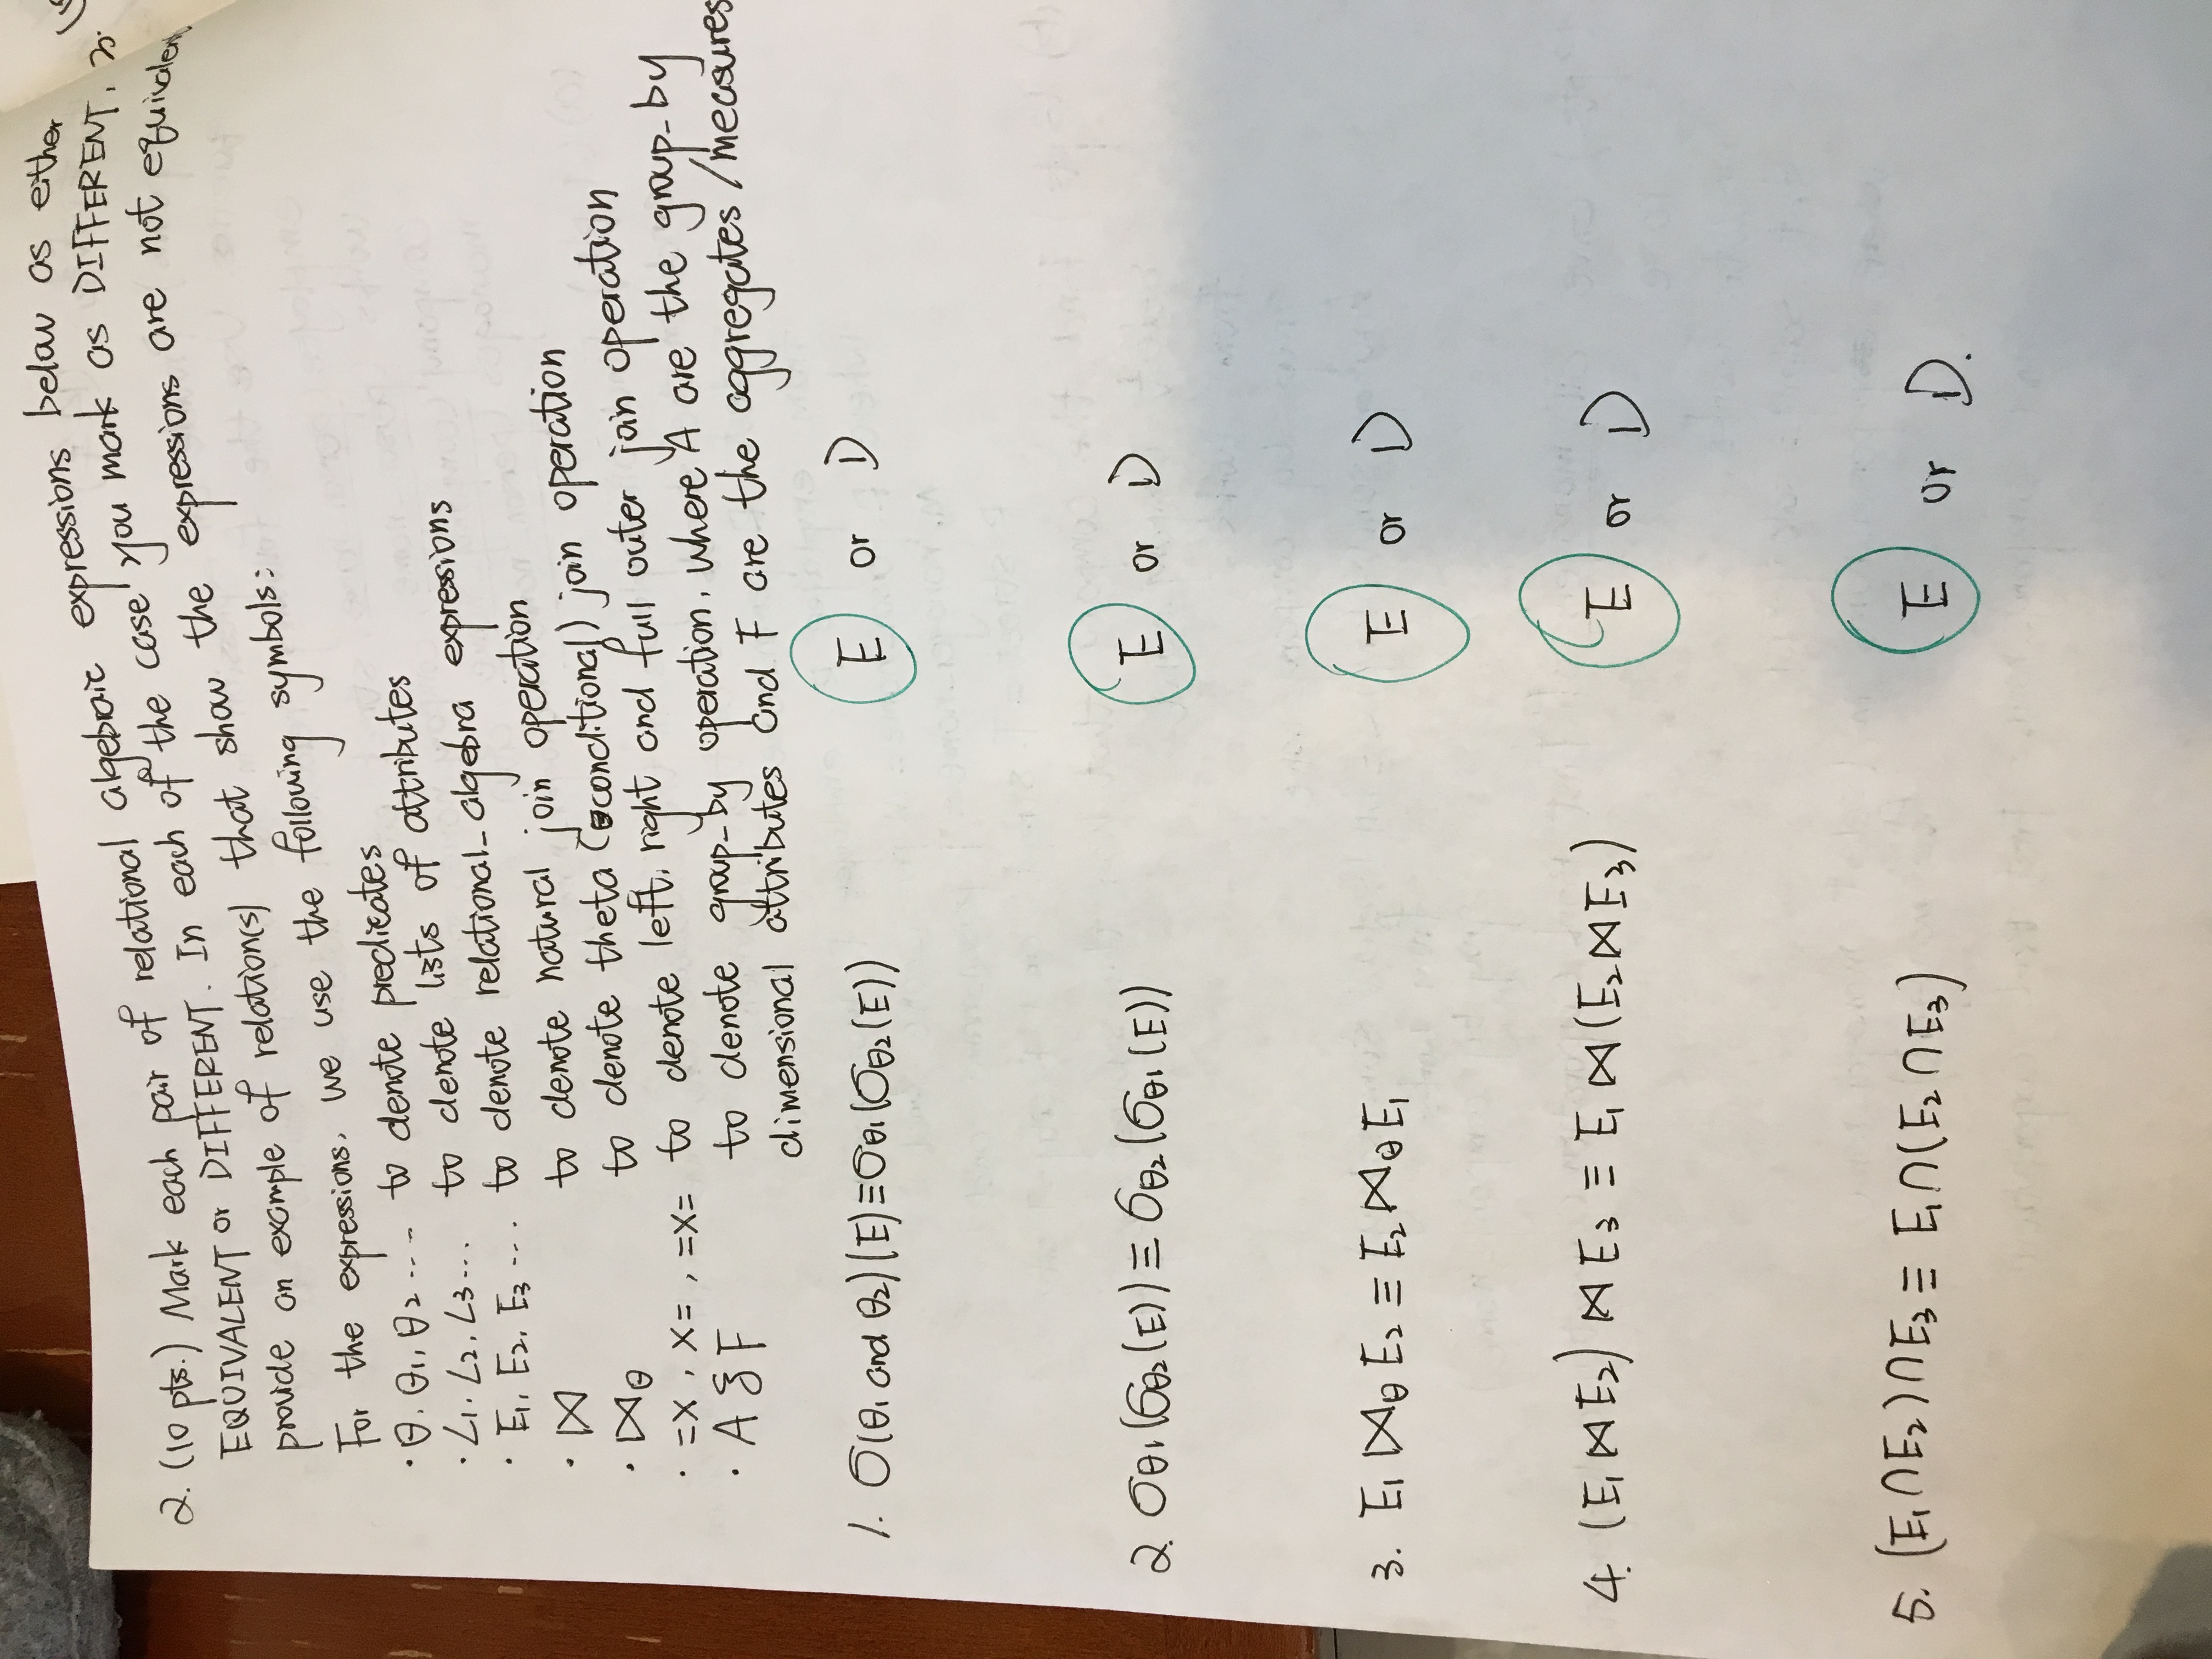 2. (10 pts.) Mark each pair of relational algebraic expressions below as either
EQUIVALENT or DIFFERENT. In each of the case you mark as DIFFERENT,
provide an example of relation(s) that show the expressions are not equivalent
For the expressions, we use the following symbols:
· θ. θ1, θ2 ... to denote predicates
· L1. L2. L3... to denote lists of attributes
· E1, E2, E3 ... to denote relational_algebra expressions
· ⋈ to denote natural join operation
· ⋈θ to denote theta (conditional) join operation
· =X , X= , =X= to denote left, right and full outer join operation
· A § F to denote group_by operation, where A are the group_by
dimensional attributes and F are the aggregates / measures
1. σ(θ1 and θ2)(E) ≡ σθ1(σθ2(E)) E or D
2. σθ1(σθ2(E)) ≡ σθ2(σθ1(E)) E or D
3. E1 ⋈θ E2 ≡ E2 ⋈θ E1 E or D
4. (E1 ⋈ E2) ⋈ E3 ≡ E1 ⋈ (E2 ⋈ E3) E or D
5. (E1 ∩ E2) ∩ E3 ≡ E1 ∩ (E2 ∩ E3) E or D.